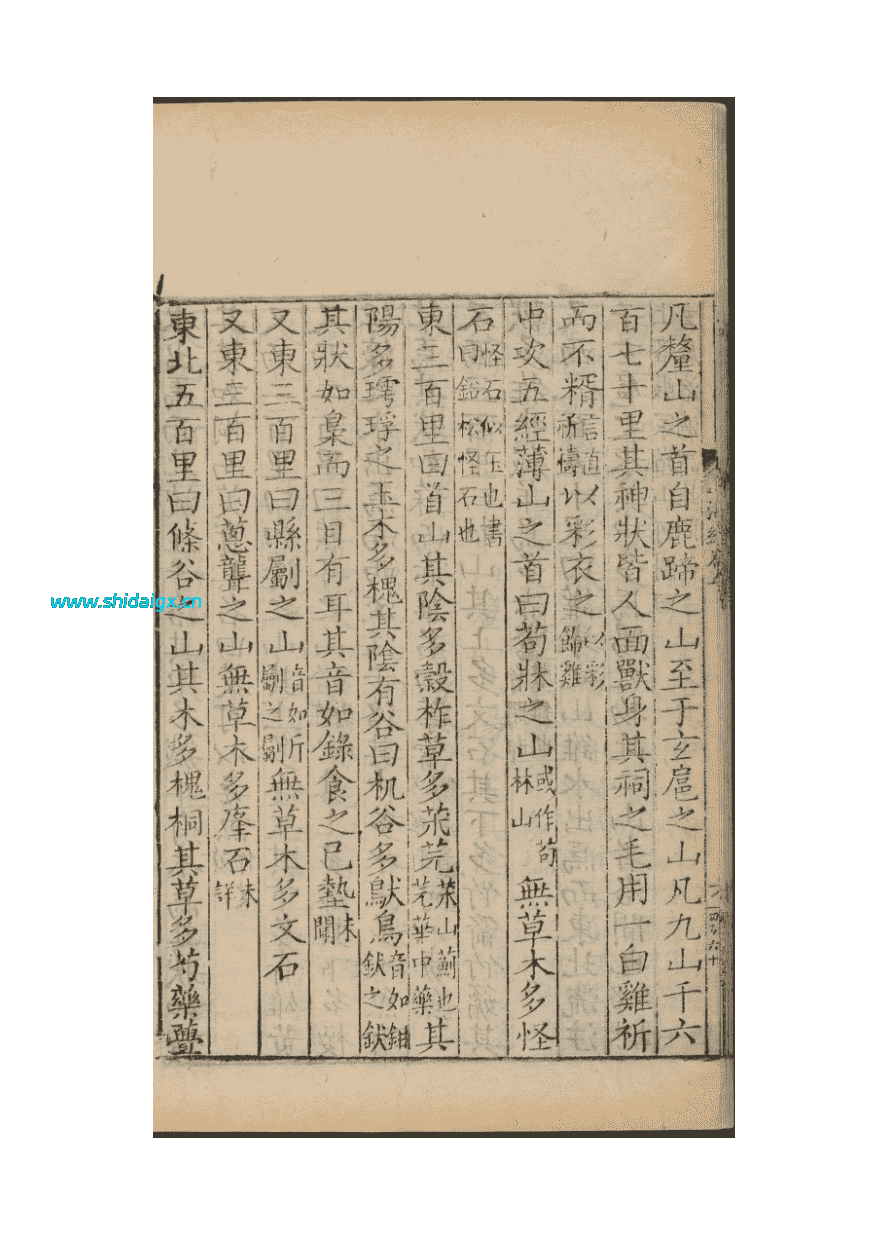 凡釐山之首自鹿蹄之山至于玄扈之山凡九山千六
百七十里其神狀皆人面獸身其祠之毛用一白雞祈
而不糈祈禱信直以彩衣之飾雞以彩
中次五經薄山之首曰苟牀之山或作苟林山無草木多怪
石怪石似玉也書曰鈆松怪石也
東三百里曰首山其陰多榖柞草多茮芫茮山薊也芫華中藥其
陽多㻬琈之玉木多槐其陰有谷曰机谷多䲦鳥音如鉗釱之釱
其狀如梟而三目有耳其音如錄食之已墊未聞
又東三百里曰縣斸之山音如斤斸之斸無草木多文石
又東三百里曰蔥聾之山無草木多㻌石未詳
東北五百里曰條谷之山其木多槐桐其草多芍藥虋
www.shidaigx.cn